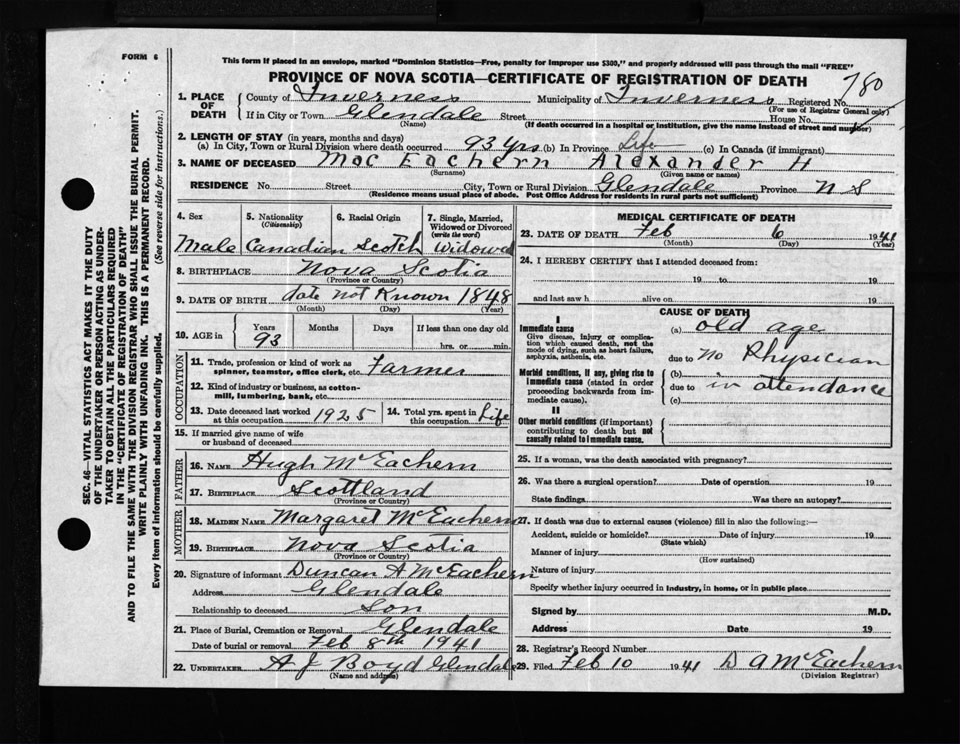 FORM 6
This form if placed in an envelope, marked "Dominion Statistics—Free, penalty for improper use $300," and properly addressed will pass through the mail "FREE"
PROVINCE OF NOVA SCOTIA—CERTIFICATE OF REGISTRATION OF DEATH
780
1. PLACE OF DEATH County of Inverness Municipality of Inverness Registered No.
(For use of Registrar General only)
If in City or Town Glendale Street House No.
(Name) (If death occurred in a hospital or institution, give the name instead of street and number)
2. LENGTH OF STAY (in years, months and days)
(a) In City, Town or Rural Division where death occurred 93 yrs (b) In Province Life (c) In Canada (if immigrant)
3. NAME OF DECEASED Mac Eachern Alexander H
(Surname) (Given name or names)
RESIDENCE No. Street City, Town or Rural Division Glendale Province N S
(Residence means usual place of abode. Post Office Address for residents in rural parts not sufficient)
4. Sex 5. Nationality (Citizenship) 6. Racial Origin 7. Single, Married, Widowed or Divorced (write the word)
Male Canadian Scotch Widowed
8. BIRTHPLACE Nova Scotia
(Province or Country)
9. DATE OF BIRTH date not Known 1848
(Month) (Day) (Year)
10. AGE in Years Months Days If less than one day old
93 hrs. or min.
OCCUPATION
11. Trade, profession or kind of work as spinner, teamster, office clerk, etc. Farmer
12. Kind of industry or business, as cotton-mill, lumbering, bank, etc.
13. Date deceased last worked at this occupation 1925 14. Total yrs. spent in this occupation Life
15. If married give name of wife or husband of deceased
FATHER
16. NAME Hugh McEachern
17. BIRTHPLACE Scottland
(Province or Country)
MOTHER
18. MAIDEN NAME Margaret McEachern
19. BIRTHPLACE Nova Scotia
(Province or Country)
20. Signature of informant Duncan A McEachern
Address Glendale
Relationship to deceased Son
21. Place of Burial, Cremation or Removal Glendale
Date of burial or removal Feb 8th 1941
22. UNDERTAKER A J Boyd Glendale
(Name and address)
MEDICAL CERTIFICATE OF DEATH
23. DATE OF DEATH Feb 6 1941
(Month) (Day) (Year)
24. I HEREBY CERTIFY that I attended deceased from:
19 to 19
and last saw h alive on 19
CAUSE OF DEATH
I
Immediate cause
Give disease, injury or complication which caused death, not the mode of dying, such as heart failure, asphyxia, asthenia, etc.
(a) old age
due to no Physician
Morbid conditions, if any, giving rise to immediate cause (stated in order proceeding backwards from immediate cause).
(b)
due to in attendance
(c)
II
Other morbid conditions (if important) contributing to death but not causally related to immediate cause.
25. If a woman, was the death associated with pregnancy?
26. Was there a surgical operation? Date of operation 19
State findings Was there an autopsy?
27. If death was due to external causes (violence) fill in also the following:—
Accident, suicide or homicide? Date of injury 19
(State which)
Manner of injury
(How sustained)
Nature of injury
Specify whether injury occurred in industry, in home, or in public place
Signed by M.D.
Address Date 19
28. Registrar's Record Number
29. Filed Feb 10 1941 D A McEachern
(Division Registrar)
SEC. 46—VITAL STATISTICS ACT MAKES IT THE DUTY
OF THE UNDERTAKER OR PERSON ACTING AS UNDER-
TAKER TO OBTAIN ALL THE PARTICULARS REQUIRED
IN THE "CERTIFICATE OF REGISTRATION OF DEATH"
AND TO FILE THE SAME WITH THE DIVISION REGISTRAR WHO SHALL ISSUE THE BURIAL PERMIT.
WRITE PLAINLY WITH UNFADING INK. THIS IS A PERMANENT RECORD.
Every item of information should be carefully supplied. (See reverse side for instructions.)